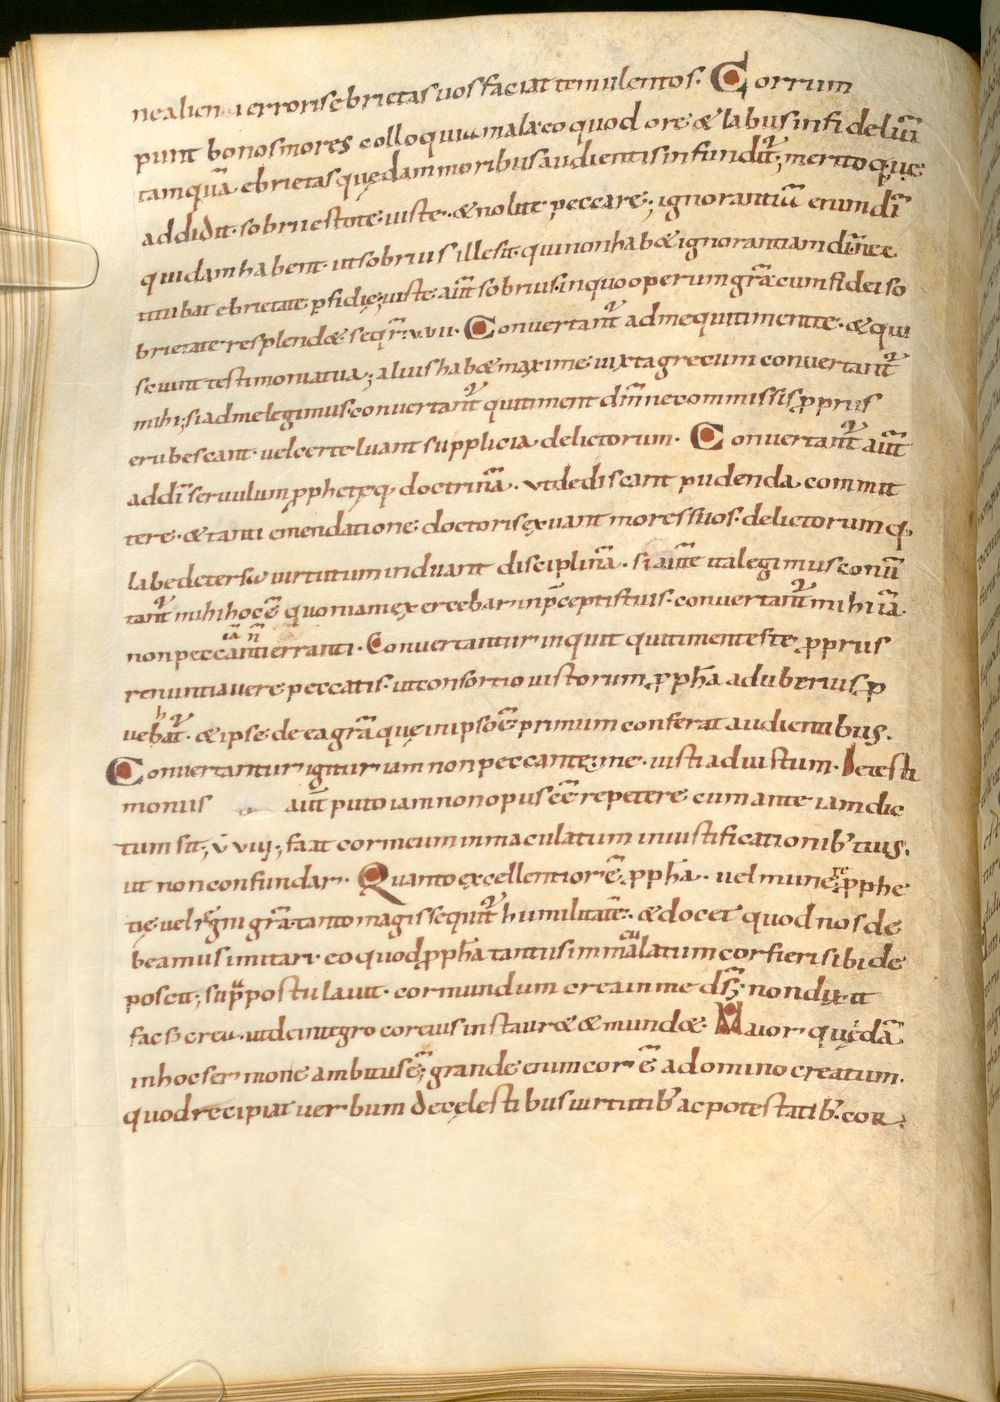 ne alieni erroris ebrietas uos faciat temulentos. Corrum
punt bonos mores colloquia mala eo quod ore & labus infideliū
tamquā ebrietas quędam moribus audientis infundit̄; merito q;
addidit. sobrii estote iuste. & nolite peccare; ignorantiā enim dī
quidam habent. ut sobrius ille sit. qui non hab& ignorantiam dī. nec
titubat ebrietate p̱fidię; iuste aūt sobrius. in quo operum grā cum fidei so
brietate resplend&. seqr̄. v. vii. Conuertant̄ ad me qui timent te. & qui
sciunt testimonia tua; alius hab& maxime iuxta grecum conuertant̄
mihi; si ad me legimus conuertant̄ qui timent dm̄ ne commissis ꝓpriis
erubescant. uel certe luant supplicia delictorum. Conuertant̄ aūt
ad dī seruulum ꝓphetęq; doctrinā. ut dediscant pudenda commit
tere. & tanti emendatione doctoris exuant mores suos. delictorumq;
labe detersa uirtutum induant disciplinā. si aūtē ita legimus conū
tant̄ mihi hoc ē quoniam exercebar in p̄ceptis tuis. conuertant̄ mihi iā
non peccanti iā n̄ erranti. Conuertantur inquit qui timent te. ꝓpriis
renuntiauere peccatis. ut consortio iustorum ꝓph̄a ad uberius ꝓ
uehat̄. & ipse de ea grā quę in ipso ē primum conferat audientibus.
Conuertantur igitur iam non peccante me. iusti ad iustum. De testi
moniis aūt puto iam non opus ēē repetere cum ante iam dic
tum sit; v. viij; fiat cor meum inmaculatum in iustificationib; tuis.
ut non confundar. Quanto excellentior ē ꝓph̄a. uel munere ꝓphe
tię uel regni grā. tanto magis sequit̄ humilitatē. & docet quod nos de
beamus imitari. eo quod ꝓph̄a tantus inmaculatum cor fieri sibi de
poscit; supra postulauit. cor mundum crea in me ds̄; non dixit
fac s; crea. ut de integro cor eius instaur& & mund&. Maior quędā
in hoc sermone ambitus ē; grande enim cor ē a domino creatum.
quod recipiat uerbum de cęlestibus uirtutib; ac potestatib; cor